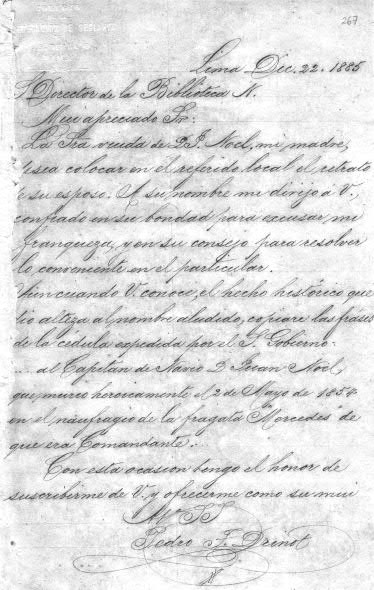 267
Lima Dic. 22. 1885
S. Director de la Biblioteca N.
Mui apreciado Sr:
La Sra viuda de D. J. Noel, mi madre,
desea colocar en el referido local el retrato
de su esposo. A su nombre me dirijo á V.
confiado en su bondad para excusar, mi
franqueza, y en su consejo para resolver
lo conveniente en el particular.
Aun cuando V. conoce, el hecho histórico que
dio alteza al nombre aludido, copiaré las frases
de la cédula expedida por el S. Gobierno:
.... al Capitan de Navio D. Juan Noel,
que murió heroicamente el 2 de Mayo de 1854
en el naufragio de la fragata "Mercedes" de
que era Comandante...
Con esta ocasion tengo el honor de
suscribirme de V. y ofrecerme como su mui
Pedro F. Drinot